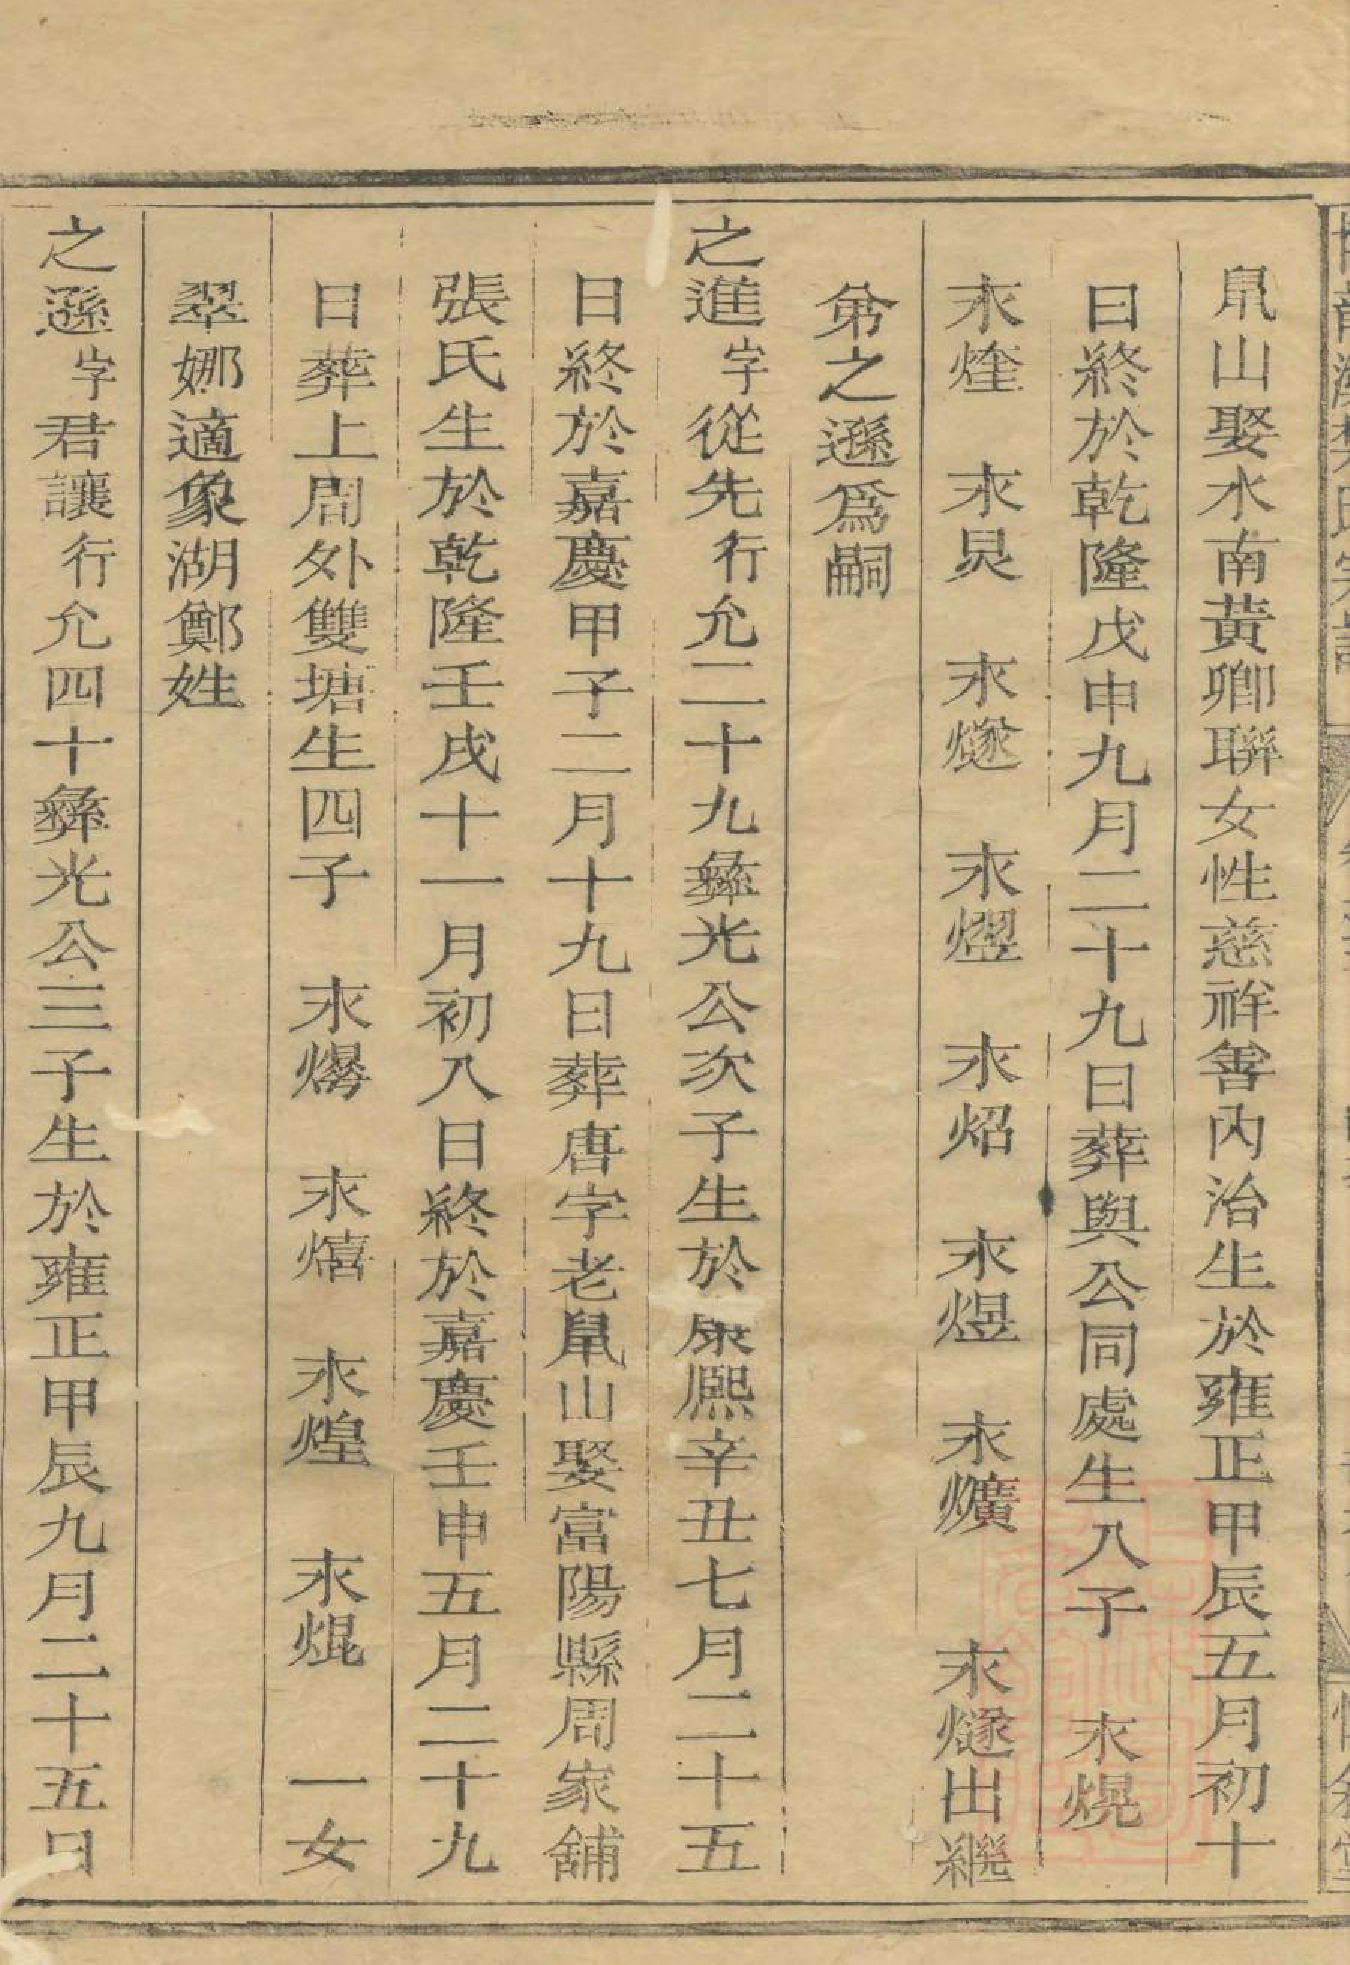 鼠山娶水南黃卿聯女性慈祥善內治生於雍正甲辰五月初十
日終於乾隆戊申九月二十九日葬與公同處生八子 永熀
永煃 永炅 永燧 永熠 永炤 永煜 永爌 永燧出繼
弟之遜爲嗣
之進字從先行允二十九彝光公次子生於康熙辛丑七月二十五
日終於嘉慶甲子二月十九日葬唐字老鼠山娶富陽縣周家舖
張氏生於乾隆壬戌十一月初八日終於嘉慶壬申五月二十九
日葬上周外雙塘生四子 永 永熺 永煌 永焜 一女
翠娜適象湖鄭姓
之遜字君讓行允四十彝光公三子生於雍正甲辰九月二十五日